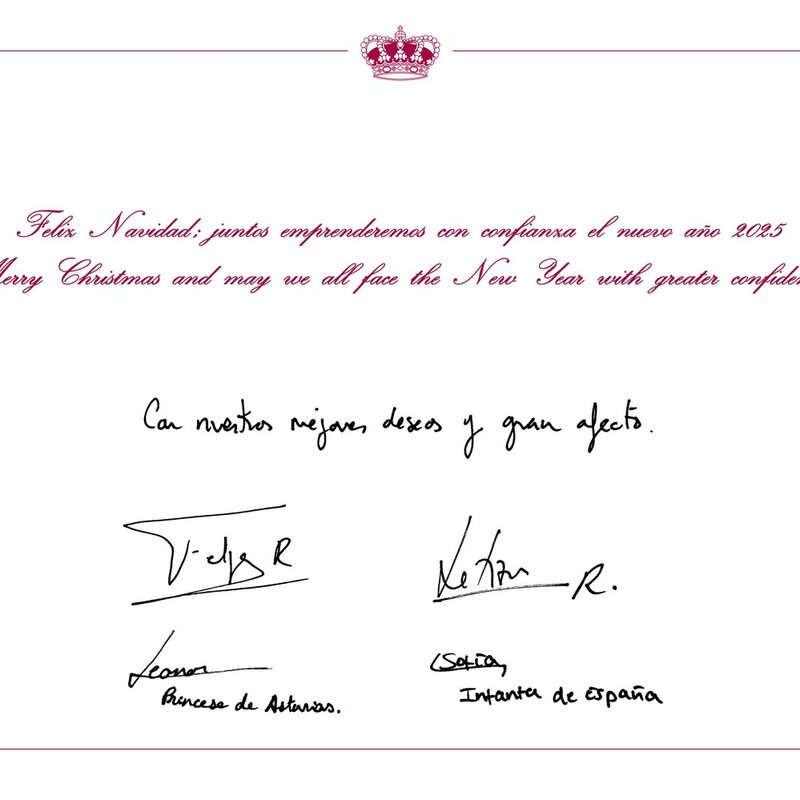 Feliz Navidad; juntos emprenderemos con confianza el nuevo año 2025
Merry Christmas and may we all face the New Year with greater confiden
Con nuestros mejores deseos y gran afecto.
Felipe R
Letizia R.
Leonor
Princesa de Asturias.
Sofía
Infanta de España